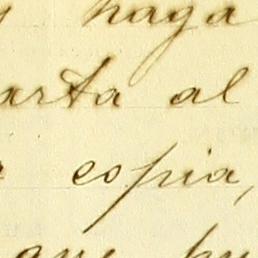 y haga
arta al
copia,
que